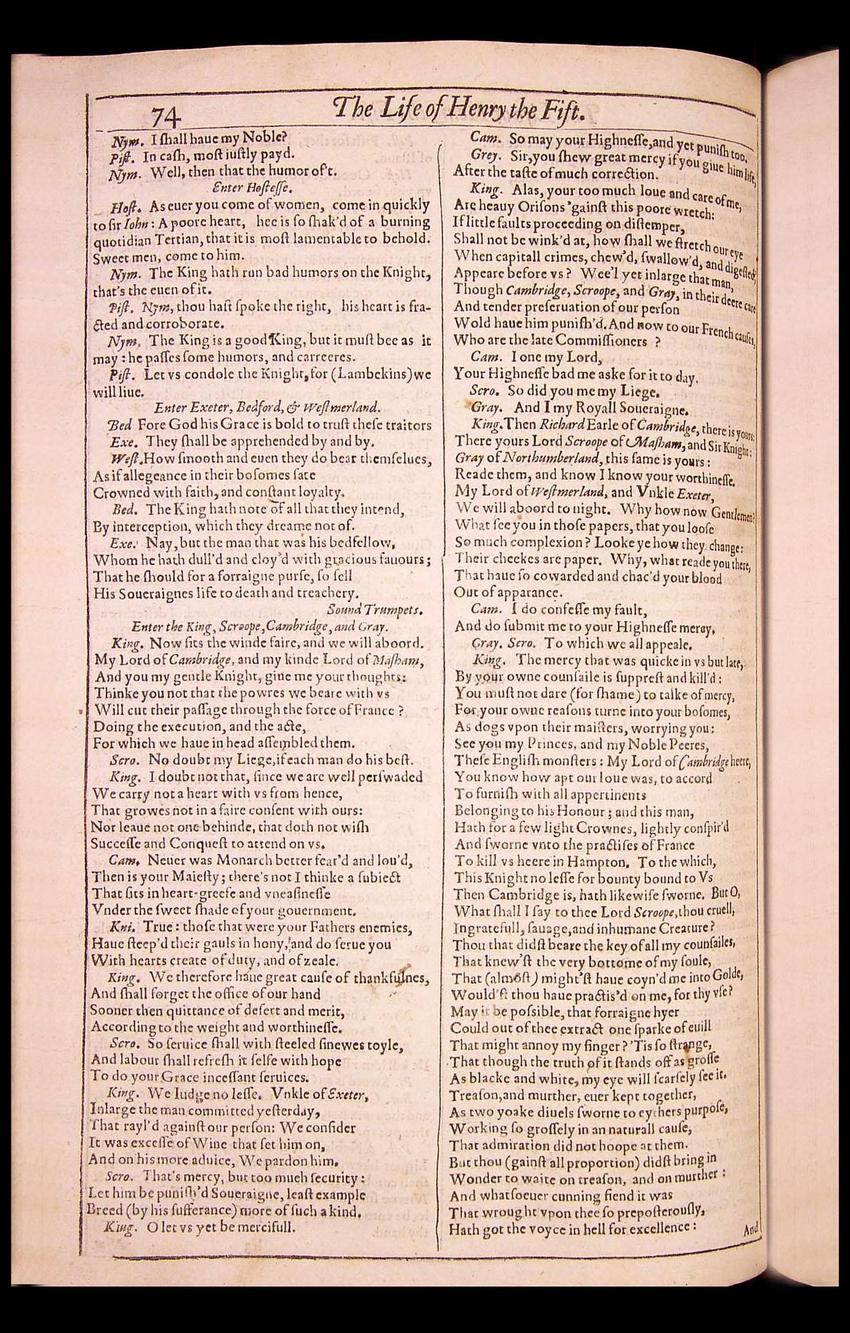 74
The Life of Henry the Fift.
Nym. I ſhall haue my Noble?
Piſt. In caſh, moſt iuſtly payd.
Nym. Well, then that the humor of't.
Enter Hoſteſſe.
Hoſt. As euer you come of women, come in quickly
to ſir Iohn: A poore heart, hee is ſo ſhak'd of a burning
quotidian Tertian, that it is moſt lamentable to behold.
Sweet men, come to him.
Nym. The King hath run bad humors on the Knight,
that's the euen of it.
Piſt. Nym, thou haſt ſpoke the right, his heart is fra-
cted and corroborate.
Nym. The King is a good King, but it muſt bee as it
may: he paſſes ſome humors, and carreeres.
Piſt. Let vs condole the Knight, for (Lambekins) we
will liue.
Enter Exeter, Bedford, & Weſtmerland.
Bed Fore God his Grace is bold to truſt theſe traitors
Exe. They ſhall be apprehended by and by.
Weſt. How ſmooth and euen they do bear themſelues,
As if allegeance in their boſomes ſate
Crowned with faith, and conſtant loyalty.
Bed. The King hath note of all that they intend,
By interception, which they dreame not of.
Exe. Nay, but the man that was his bedfellow,
Whom he hath dull'd and cloy'd with gracious fauours;
That he ſhould for a forraigne purſe, ſo ſell
His Soueraignes life to death and treachery.
Sound Trumpets.
Enter the King, Scroope, Cambridge, and Gray.
King. Now ſits the winde faire, and we will aboord.
My Lord of Cambridge, and my kinde Lord of Maſham,
And you my gentle Knight, giue me your thoughts:
Thinke you not that the powres we beare with vs
Will cut their paſſage through the force of France?
Doing the execution, and the acte,
For which we haue in head aſſembled them.
Scro. No doubt my Liege, if each man do his beſt.
King. I doubt not that, ſince we are well perſwaded
We carry not a heart with vs from hence,
That growes not in a faire conſent with ours:
Nor leaue not one behinde, that doth not wiſh
Succeſſe and Conqueſt to attend on vs.
Cam. Neuer was Monarch better fear'd and lou'd,
Then is your Maieſty; there's not I thinke a ſubiect
That ſits in heart-greefe and vneaſineſſe
Vnder the ſweet ſhade of your gouernment.
Kni. True: thoſe that were your Fathers enemies,
Haue ſteep'd their gauls in hony, and do ſerue you
With hearts create of duty, and of zeale.
King. We therefore haue great cauſe of thankfulnes,
And ſhall forget the office of our hand
Sooner then quittance of deſert and merit,
According to the weight and worthineſſe.
Scro. So ſeruice ſhall with ſteeled ſinewes toyle,
And labour ſhall refreſh it ſelfe with hope
To do your Grace inceſſant ſeruices.
King. We Iudge no leſſe. Vnkle of Exeter,
Inlarge the man committed yeſterday,
That rayl'd againſt our perſon: We conſider
It was exceſſe of Wine that ſet him on,
And on his more aduice, We pardon him.
Scro. That's mercy, but too much ſecurity:
Let him be puniſh'd Soueraigne, leaſt example
Breed (by his ſufferance) more of ſuch a kind.
King. O let vs yet be mercifull.
Cam. So may your Highneſſe, and yet puniſh too.
Grey. Sir, you ſhew great mercy if you giue him life,
After the taſte of much correction.
King. Alas, your too much loue and care of me,
Are heauy Oriſons 'gainſt this poore wretch:
If little faults proceeding on diſtemper,
Shall not be wink'd at, how ſhall we ſtretch our eye
When capitall crimes, chew'd, ſwallow'd, and digeſted,
Appeare before vs? Wee'l yet inlarge that man,
Though Cambridge, Scroope, and Gray, in their deere care
And tender preſeruation of our perſon
Wold haue him puniſh'd. And now to our French cauſes,
Who are the late Commiſſioners ?
Cam. I one my Lord,
Your Highneſſe bad me aske for it to day.
Scro. So did you me my Liege.
Gray. And I my Royall Soueraigne.
King. Then Richard Earle of Cambridge, there is yours:
There yours Lord Scroope of Maſham, and Sir Knight:
Gray of Northumberland, this ſame is yours:
Reade them, and know I know your worthineſſe.
My Lord of Weſtmerland, and Vnkle Exeter,
We will aboord to night. Why how now Gentlemen?
What ſee you in thoſe papers, that you looſe
So much complexion? Looke ye how they change:
Their cheekes are paper. Why, what reade you there,
That haue ſo cowarded and chac'd your blood
Out of apparance.
Cam. I do confeſſe my fault,
And do ſubmit me to your Highneſſe mercy.
Gray. Scro. To which we all appeale.
King. The mercy that was quicke in vs but late,
By your owne counſaile is ſuppreſt and kill'd:
You muſt not dare (for ſhame) to talke of mercy,
For your owne reaſons turne into your boſomes,
As dogs vpon their maiſters, worrying you:
See you my Princes, and my Noble Peeres,
Theſe Engliſh monſters: My Lord of Cambridge heere,
You know how apt our loue was, to accord
To furniſh with all appertinents
Belonging to his Honour; and this man,
Hath for a few light Crownes, lightly conſpir'd
And ſworne vnto the practiſes of France
To kill vs heere in Hampton. To the which,
This Knight no leſſe for bounty bound to Vs
Then Cambridge is, hath likewiſe ſworne. But O,
What ſhall I ſay to thee Lord Scroope, thou cruell,
Ingratefull, ſauage, and inhumane Creature?
Thou that didſt beare the key of all my counſailes,
That knew'ſt the very bottome of my ſoule,
That (almoſt) might'ſt haue coyn'd me into Golde,
Would'ſt thou haue practis'd on me, for thy vſe?
May it be poſsible, that forraigne hyer
Could out of thee extract one ſparke of euill
That might annoy my finger? 'Tis ſo ſtrange,
That though the truth of it ſtands off as groſſe
As blacke and white, my eye will ſcarſely ſee it.
Treaſon, and murther, euer kept together,
As two yoake diuels ſworne to eythers purpoſe,
Working ſo groſſely in an naturall cauſe,
That admiration did not hoope at them.
But thou (gainſt all proportion) didſt bring in
Wonder to waite on treaſon, and on murther:
And whatſoeuer cunning fiend it was
That wrought vpon thee ſo prepoſterouſly,
Hath got the voyce in hell for excellence:
And